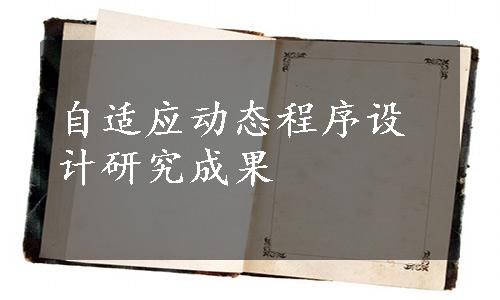 自适应动态程序设
计研究成果